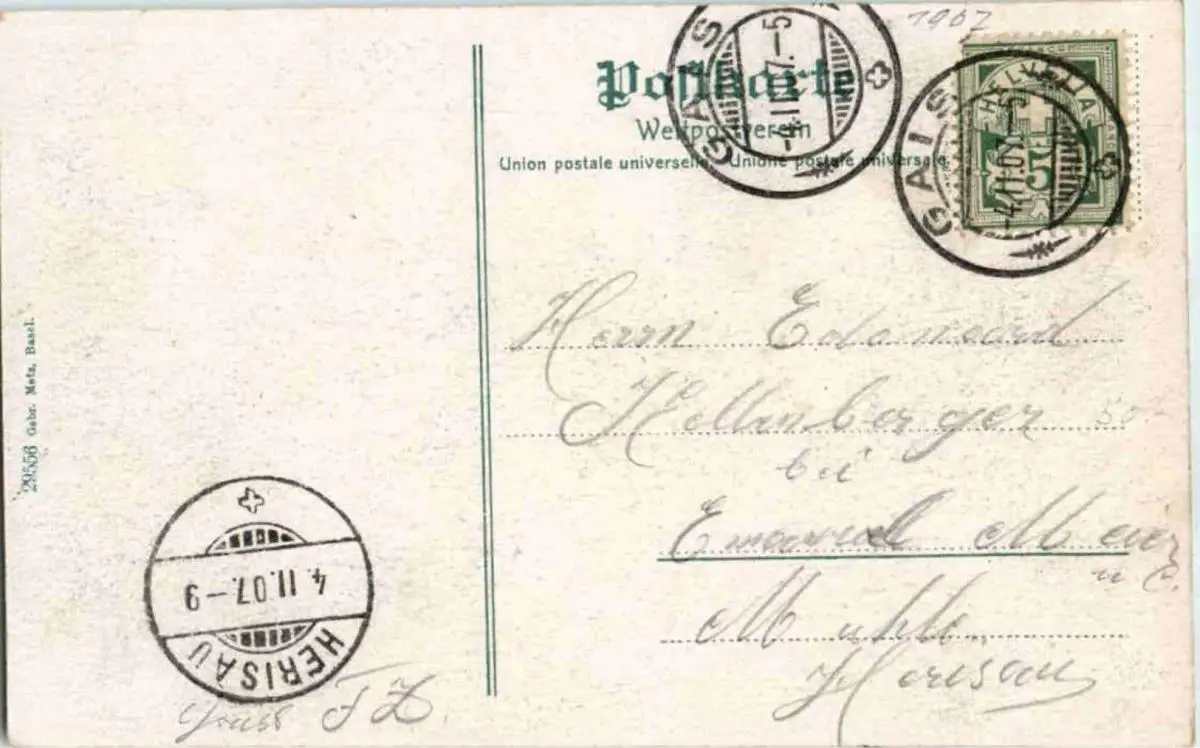 1907
Postkarte
Weltpostverein
Union postale universelle. Unione postale universale
GAIS
-4.II.07.-5
HELVETIA
5
GAIS
-4.II.07.-5
Herrn Edouard
Hellenberger
bei
Emanuel Meier
u C.
Mühle
Herisau
29556 Gebr. Metz, Basel.
4.II.07.-9
HERISAU
Gruss FZ.